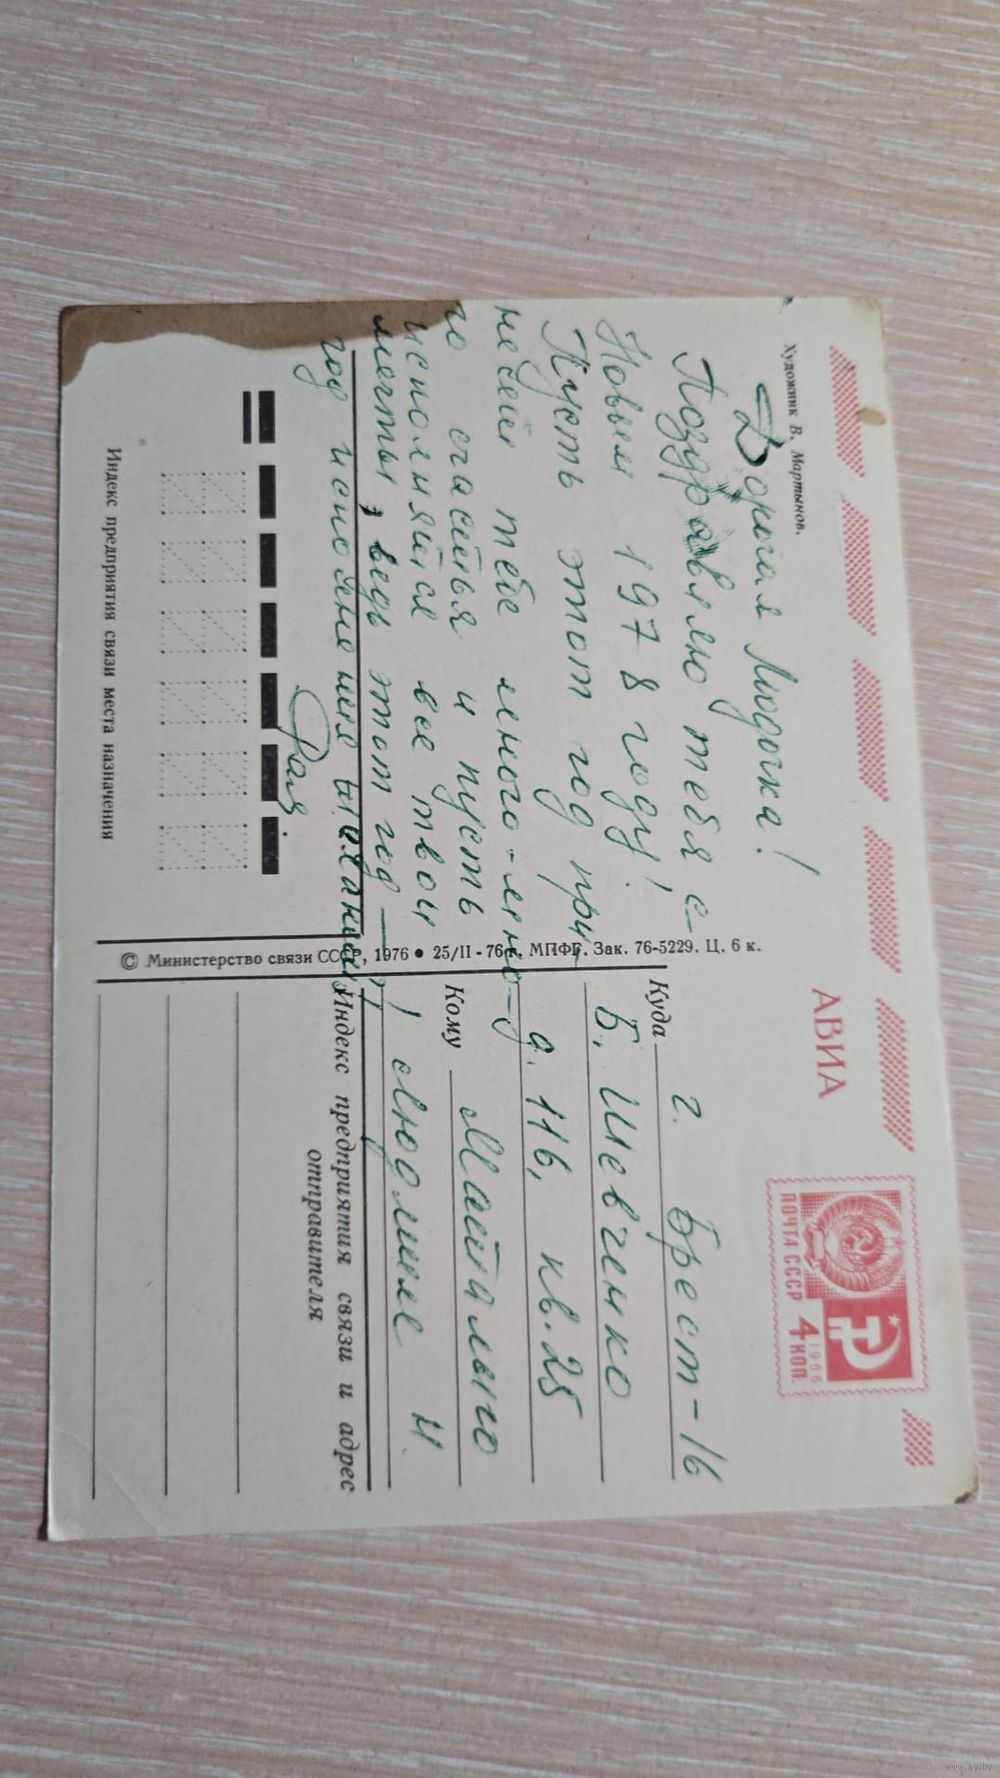 Художник В. Мартынов.
Дорогая Людочка!
Поздравляю тебя с
Новым 1978 годом!
Пусть этот год при-
несёт тебе много-мно-
го счастья и пусть
исполняйся все твои
мечты, ведь этот год —
год исполнения
Рая.
Индекс предприятия связи места назначения
© Министерство связи СССР, 1976 • 25/II-76 г. МПФГ. Зак. 76-5229. Ц. 6 к.
АВИА
ПОЧТА СССР
1966
4 КОП.
Куда г. Брест-16
Б. Шевченко
д. 116, кв. 25
Кому
Людмиле Н.
Индекс предприятия связи и адрес
отправителя
www.ay.by